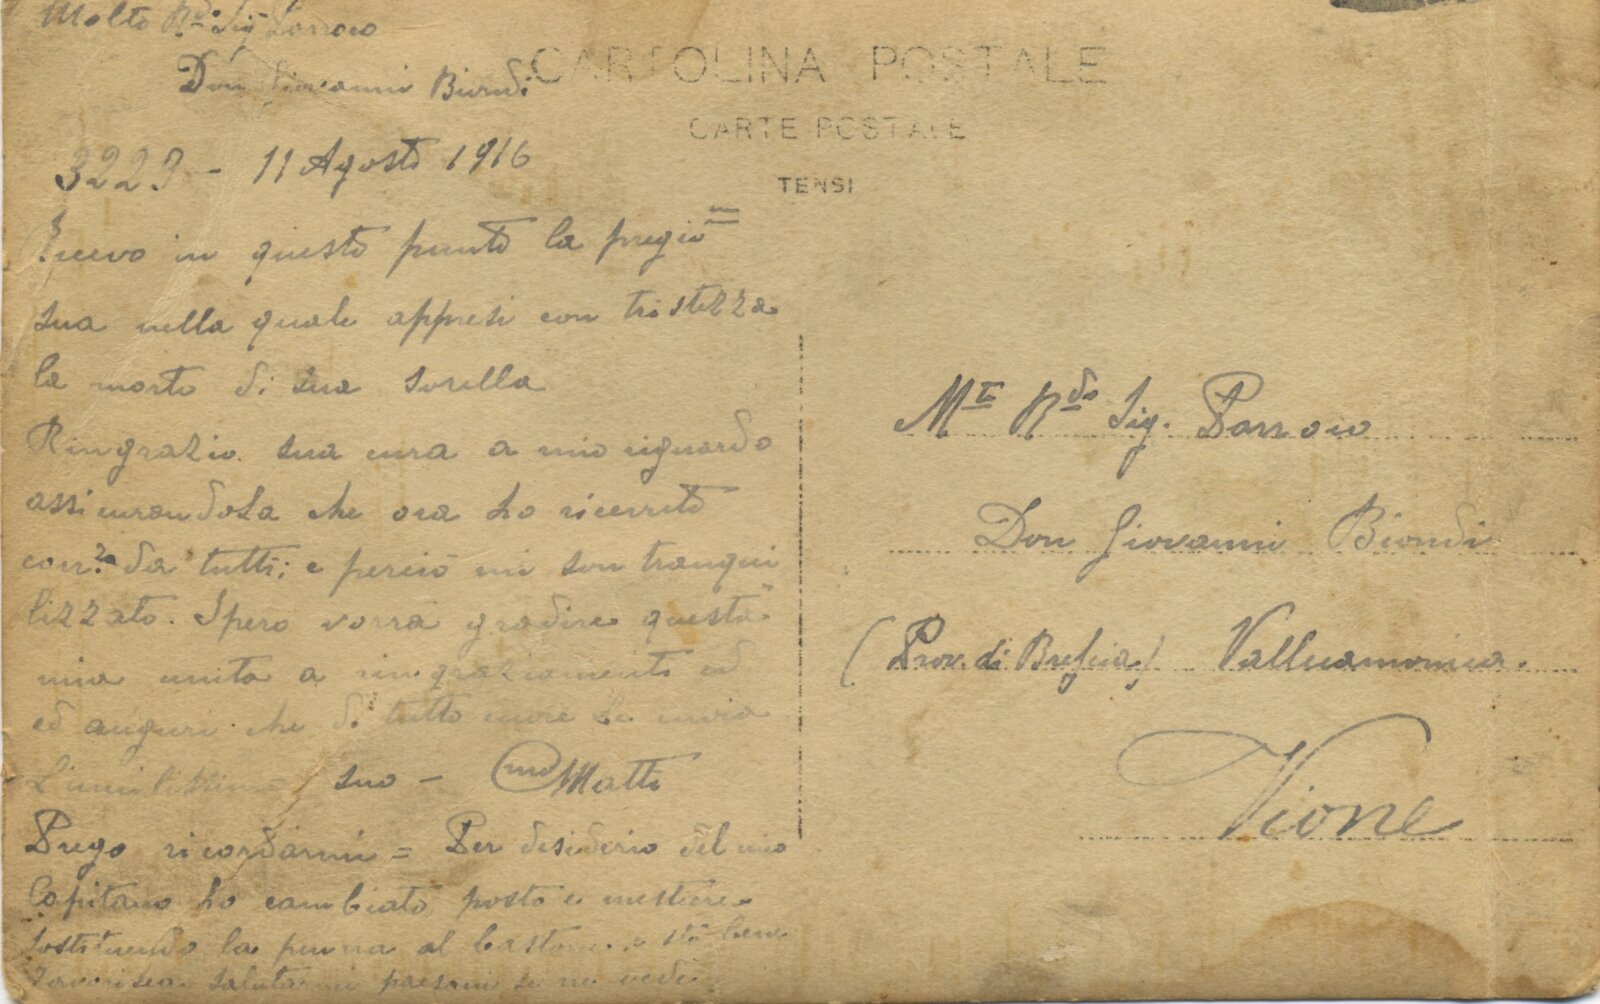 Molto Rdo Sig Parroco
Don Giovanni Biondi
CARTOLINA POSTALE
CARTE POSTALE
TENSI
3223 - 11 Agosto 1916
Ricevo in questo punto la pregio=
sua nella quale appresi con tristezza
la morte di sua sorella
Ringrazio sua cura a mio riguardo
assicurandola che ora ho ricevuto
da tutti; e perciò mi son tranqui
lizzato. Spero vorrà gradire questa
mia unita a ringraziamenti ed
ed auguri che di tutto cuore Le invio
L'umilissimo suo - Matti
Prego ricordarmi = Per desiderio del mio
Capitano ho cambiato posto e mestiere
sostituendo la penna al bastone e stò bene
Favorisca salutarmi paesani se ne vede
Mto Rdo Sig. Parroco
Don Giovanni Biondi
(Prov. di Brescia) Vallecamonica.
Vione